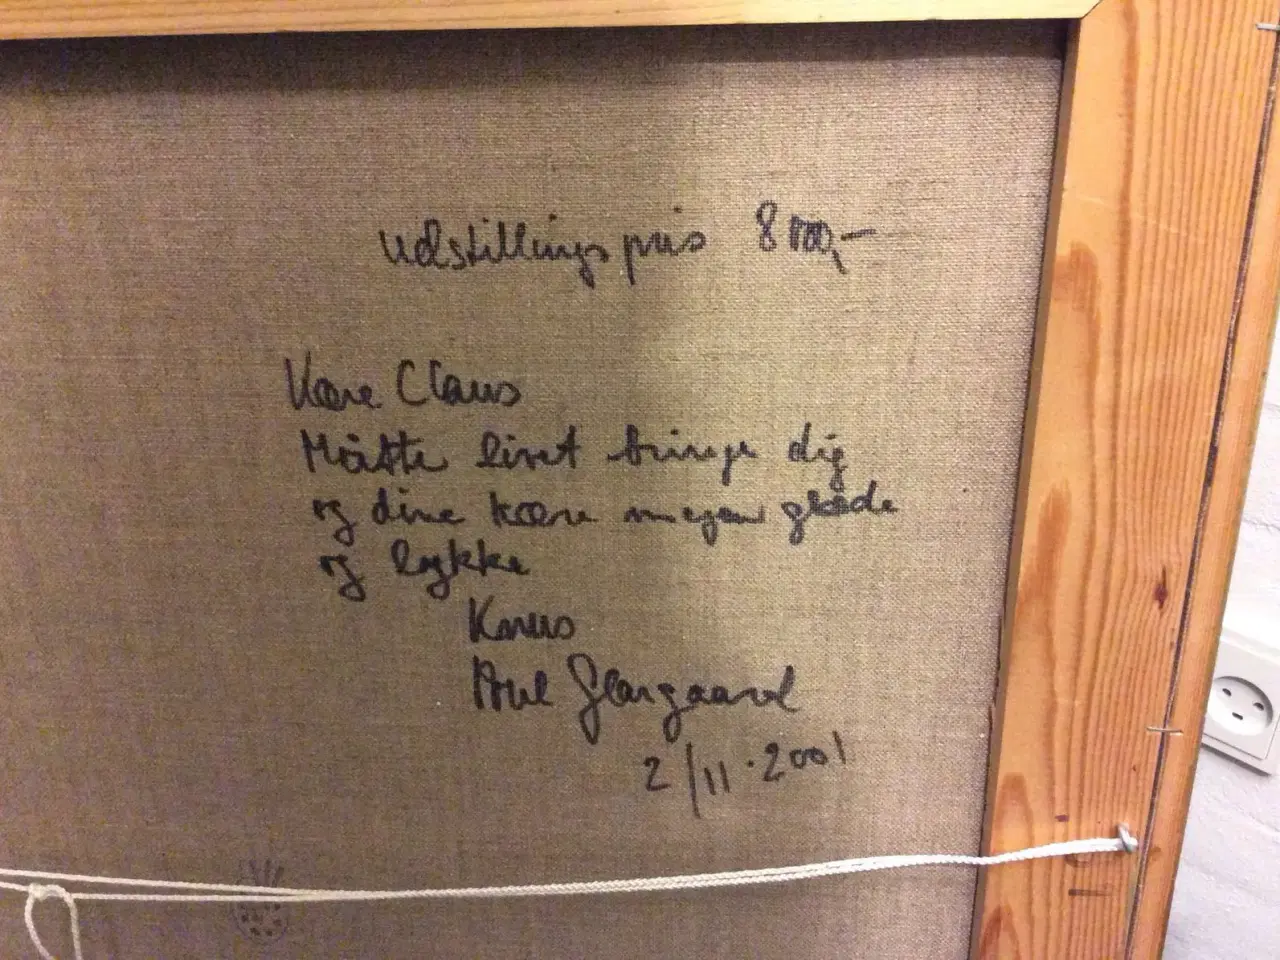 Udstillingspris 8000,-
Kære Claus
Måtte livet bringe dig
og dine kære megen glæde
og lykke
Knus
Poul
2/11.2001